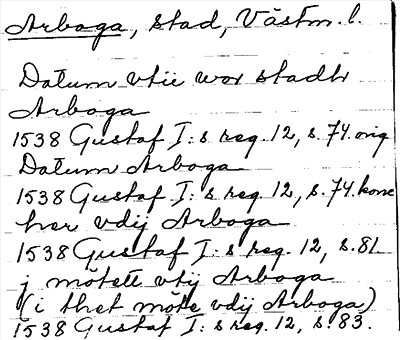 Arboga, stad, Västm. l.
Datum vtii wor stadh
Arboga
1538 Gustaf I:s reg. 12, s. 74. orig
Datum Arboga
1538 Gustaf I:s reg. 12, s. 74. konc
her vdij Arboga
1538 Gustaf I:s reg. 12, s. 81
j mötett vtij Arboga
(i thet möte vdij Arboga)
1538 Gustaf I:s reg. 12, s. 83.